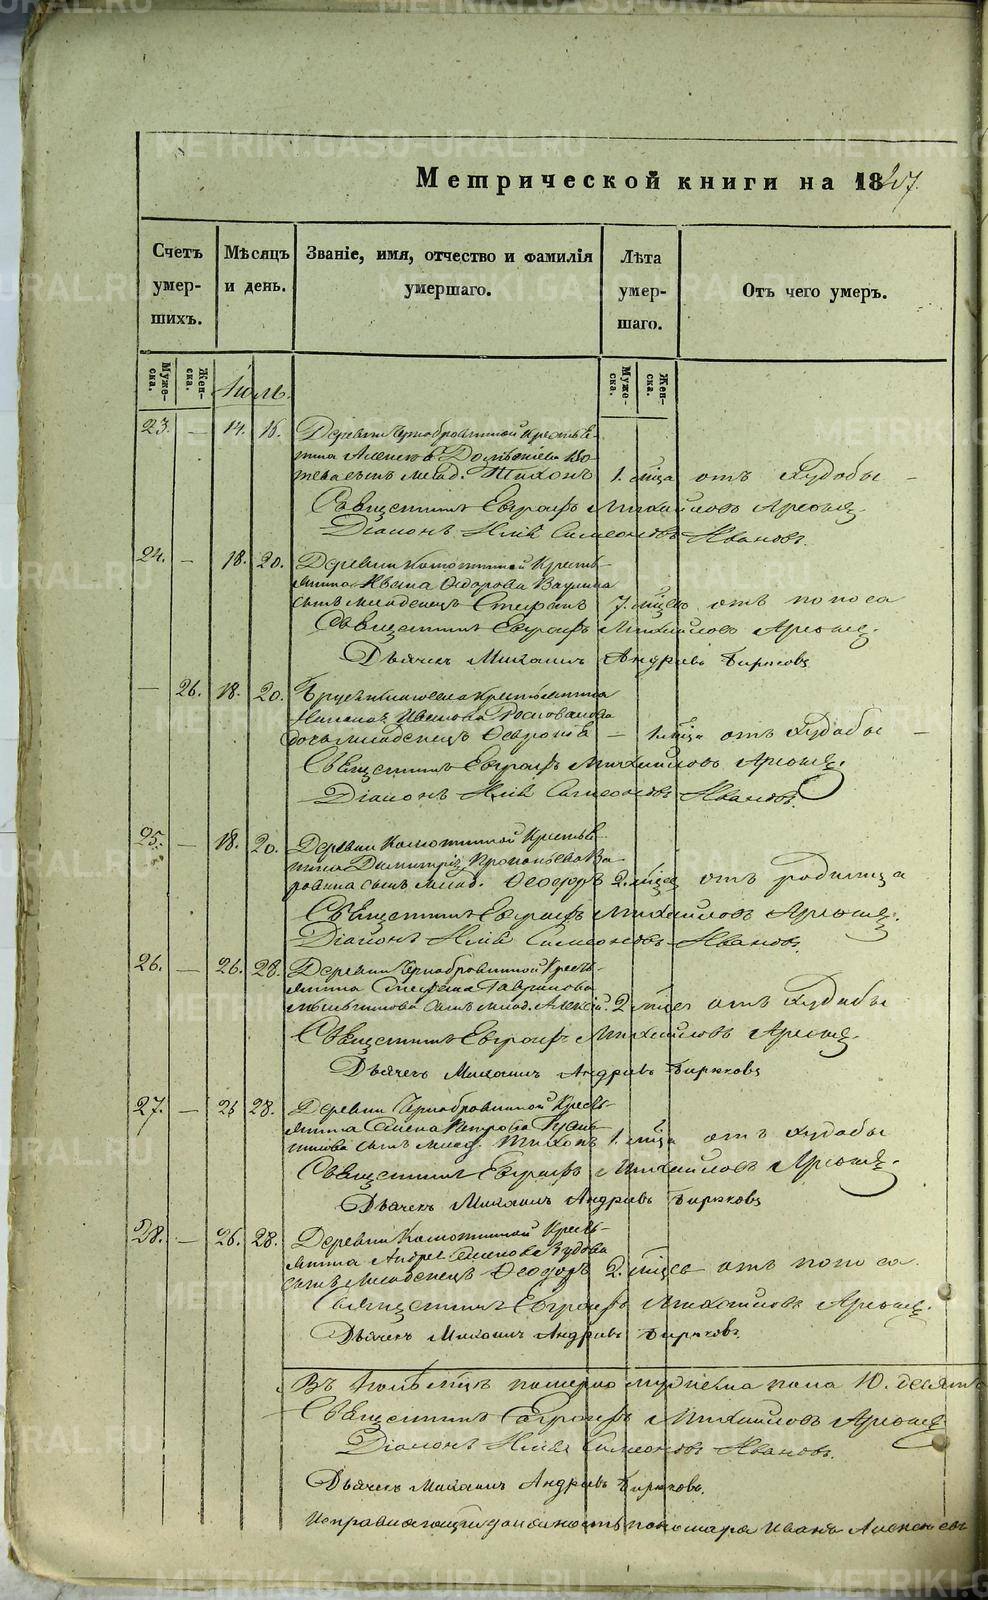 METRIKI.GASO-URAL.RU
Метрической книги на 18
Счетъ умер- шихъ.
Мѣсяцъ и день.
Званіе, имя, отчество и фамилія умершаго.
Лѣта умер- шаго.
Отъ чего умеръ.
Муже- ска.
Жен- ска.
Іюль.
Муже- ска.
Жен- ска.
23. — 14. 16. Деревни Чернобровиной Крестья-
нина Алексѣя
сынъ млад. Тихонъ 1. мѣсца отъ худобы —
Священникъ Евграфъ Михайловъ
Діаконъ Илія Симеоновъ Ивановъ.
24. — 18. 20. Деревни Кресть-
янина Ивана Федорова Ваулина
сынъ младенецъ Стефанъ 7. мѣсцъ отъ поноса
Священникъ Евграфъ Михайловъ
Дьячекъ Михаилъ Андреевъ Бирюковъ
— 26. 18. 20. крестьянина
Иванова
дочь младенецъ Февронія — 1. мѣсца отъ худобы —
Священникъ Евграфъ Михайловъ
Діаконъ Илія Симеоновъ Ивановъ.
25. — 18. 20. Деревни Крестья-
нина Димитрія Прокопьева
сынъ млад. Феодоръ 2. мѣсца отъ родимца
Священникъ Евграфъ Михайловъ
Діаконъ Илія Симеоновъ Ивановъ.
26. — 26. 28. Деревни Чернобровиной Кресть-
янина Стефана Гаврилова
сынъ млад. Алексѣй. 2 мѣсца отъ худобы
Священникъ Евграфъ Михайловъ
Дьячекъ Михаилъ Андреевъ Бирюковъ
27. — 26 28. Деревни Чернобровиной Кресть-
янина Семена Петрова
сынъ млад. Тихонъ 1. мѣсца отъ худобы
Священникъ Евграфъ Михайловъ
Дьячекъ Михаилъ Андреевъ Бирюковъ
28. — 26. 28. Деревни Кресть-
янина Андрея Семенова
сынъ младенецъ Феодоръ 2. мѣсца отъ поноса
Священникъ Евграфъ Михайловъ
Дьячекъ Михаилъ Андреевъ Бирюковъ.
Въ Іюлѣ мѣсцѣ померло мужеска пола 10. десять
Священникъ Евграфъ Михайловъ
Діаконъ Илія Симеоновъ Ивановъ.
Дьячекъ Михаилъ Андреевъ Бирюковъ.
Исправляющій должность пономаря Иванъ Алексѣевъ